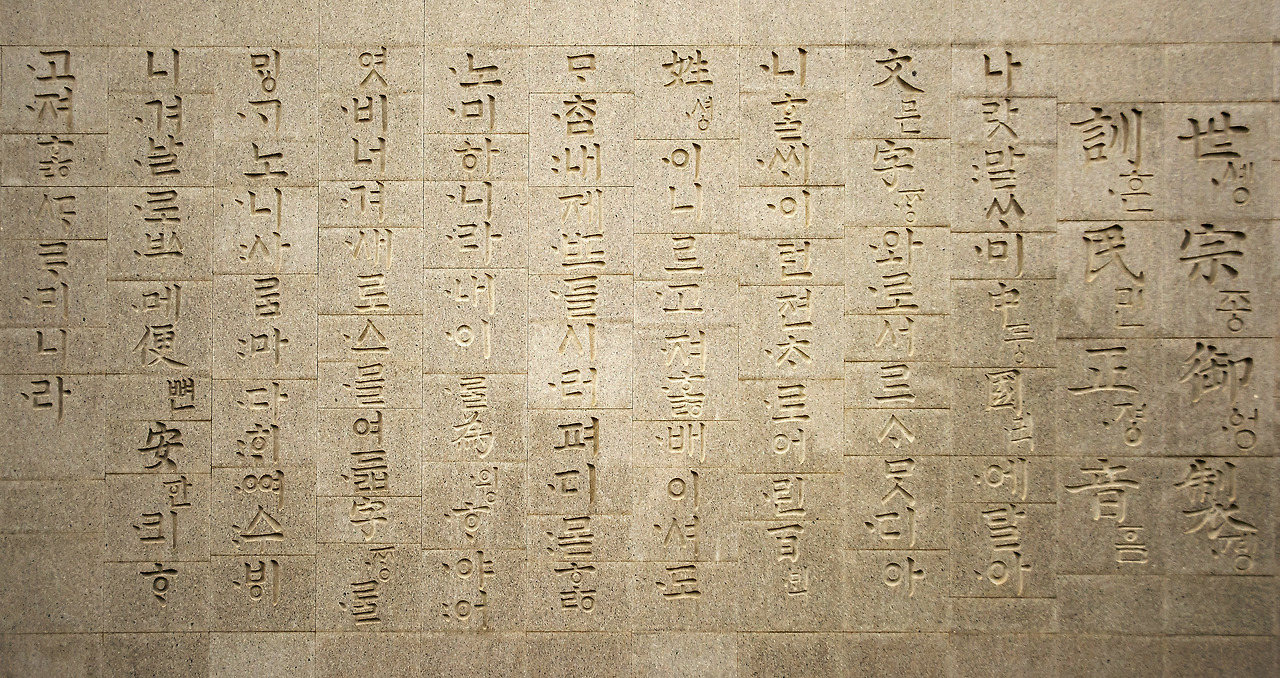 世솅宗종御엉製졩
訓훈民민正졍音ᅙᅳᆷ
나랏말ᄊᆞ미中듕國귁에달아
文문字ᄍᆞᆼ와로서르ᄉᆞᄆᆞᆺ디아
니ᄒᆞᆯᄊᆡ이런젼ᄎᆞ로어린百ᄇᆡᆨ
姓셩이니르고져호ᇙ배이셔도
ᄆᆞᄎᆞᆷ내제ᄠᅳ들시러펴디몯ᄒᆞᇙ
노미하니라내이ᄅᆞᆯ為윙ᄒᆞ야어
엿비너겨새로스믈여듧字ᄍᆞᆼᄅᆞᆯ
ᄆᆡᇰᄀᆞ노니사ᄅᆞᆷ마다ᄒᆡᅇᅧ수ᄫᅵ
니겨날로ᄡᅮ메便뼌安ᅙᅡᆫ킈ᄒᆞ
고져ᄒᆞᇙᄯᆞᄅᆞ미니라